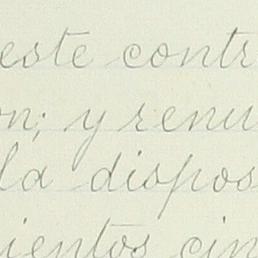 este contr
on; y renu
la dispos
ientos cin